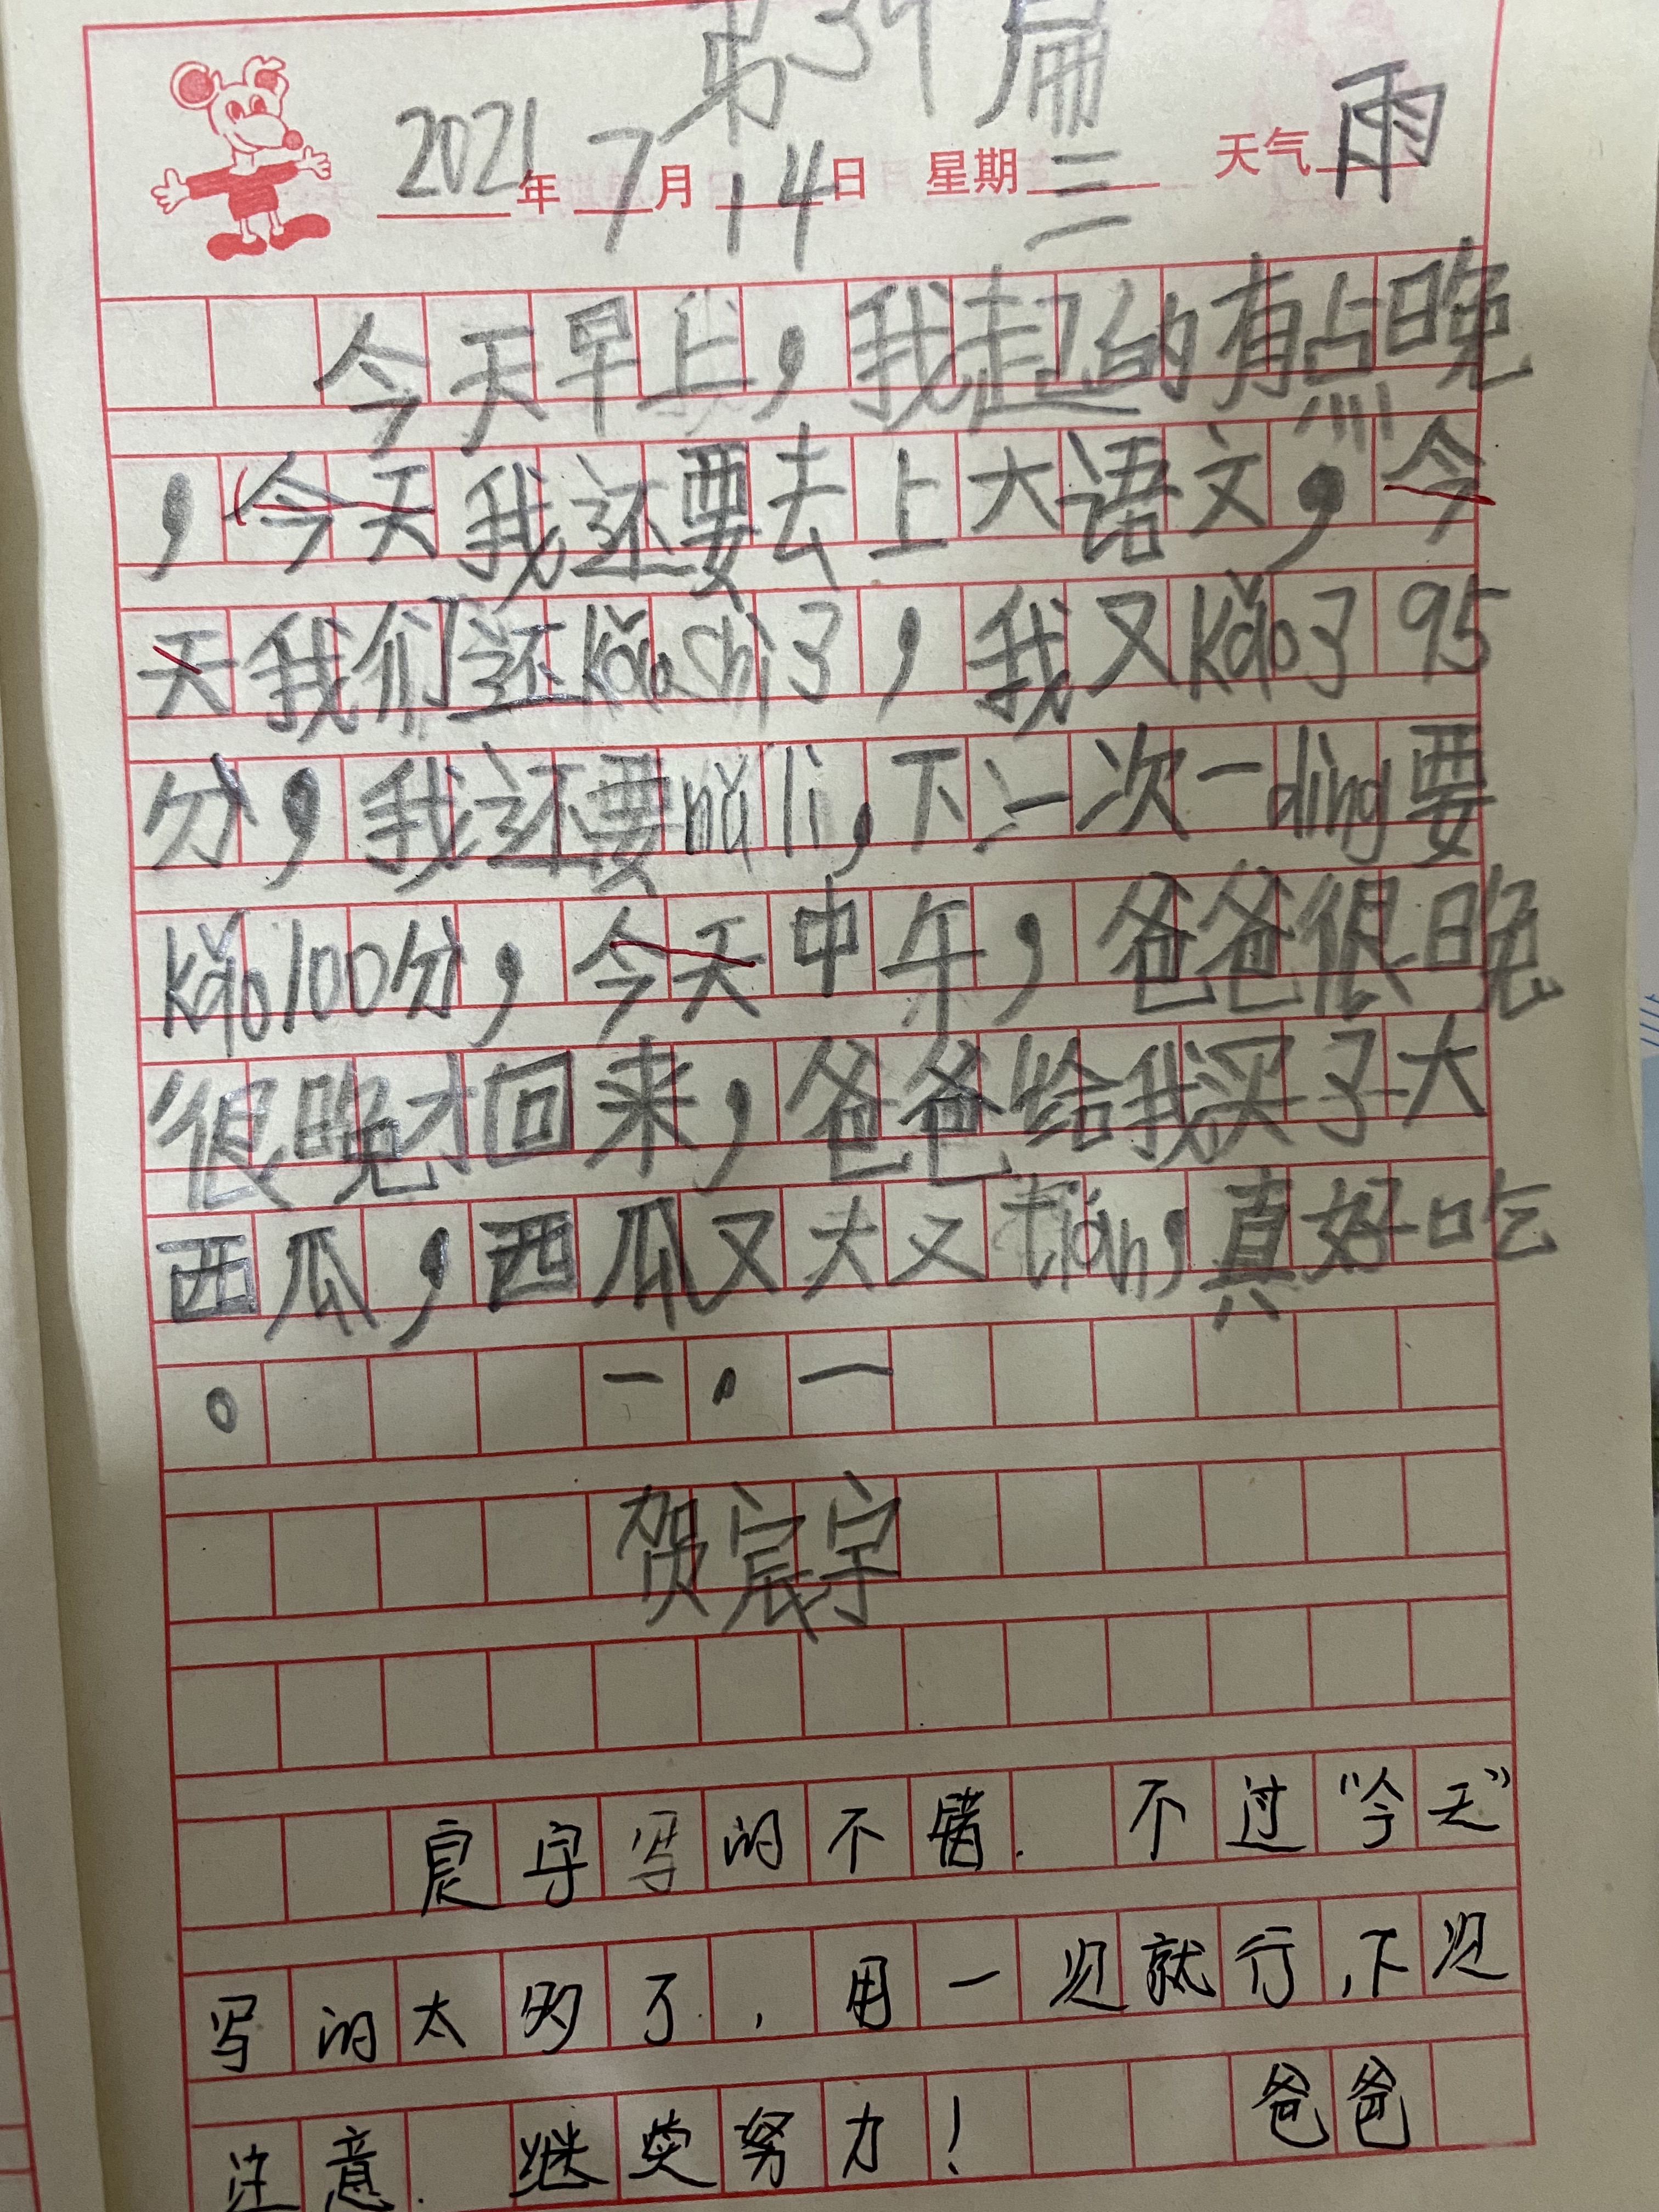 第39篇
2021年7月14日 星期三 天气雨
今天早上，我起的有点晚
，今天我还要去上大语文，今
天我们还kǎoshì了，我又kǎo了95
分，我还要nǔ lì，下一次一dìng要
kǎo100分，今天中午，爸爸很晚
很晚才回来，爸爸给我买了大
西瓜，西瓜又大又tián，真好吃
。 一·一
贺宸宇
宸宇写的不错. 不过“今天”
写的太多了，用一次就行，下次
注意. 继续努力！ 爸爸